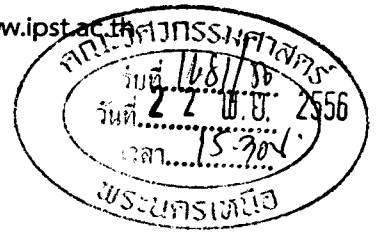 w.ipst.ac.th
คณะวิศวกรรมศาสตร์
รับที่ 1681/56
วันที่ 22 พ.ย. 2556
เวลา 15-30 น.
พระนครเหนือ